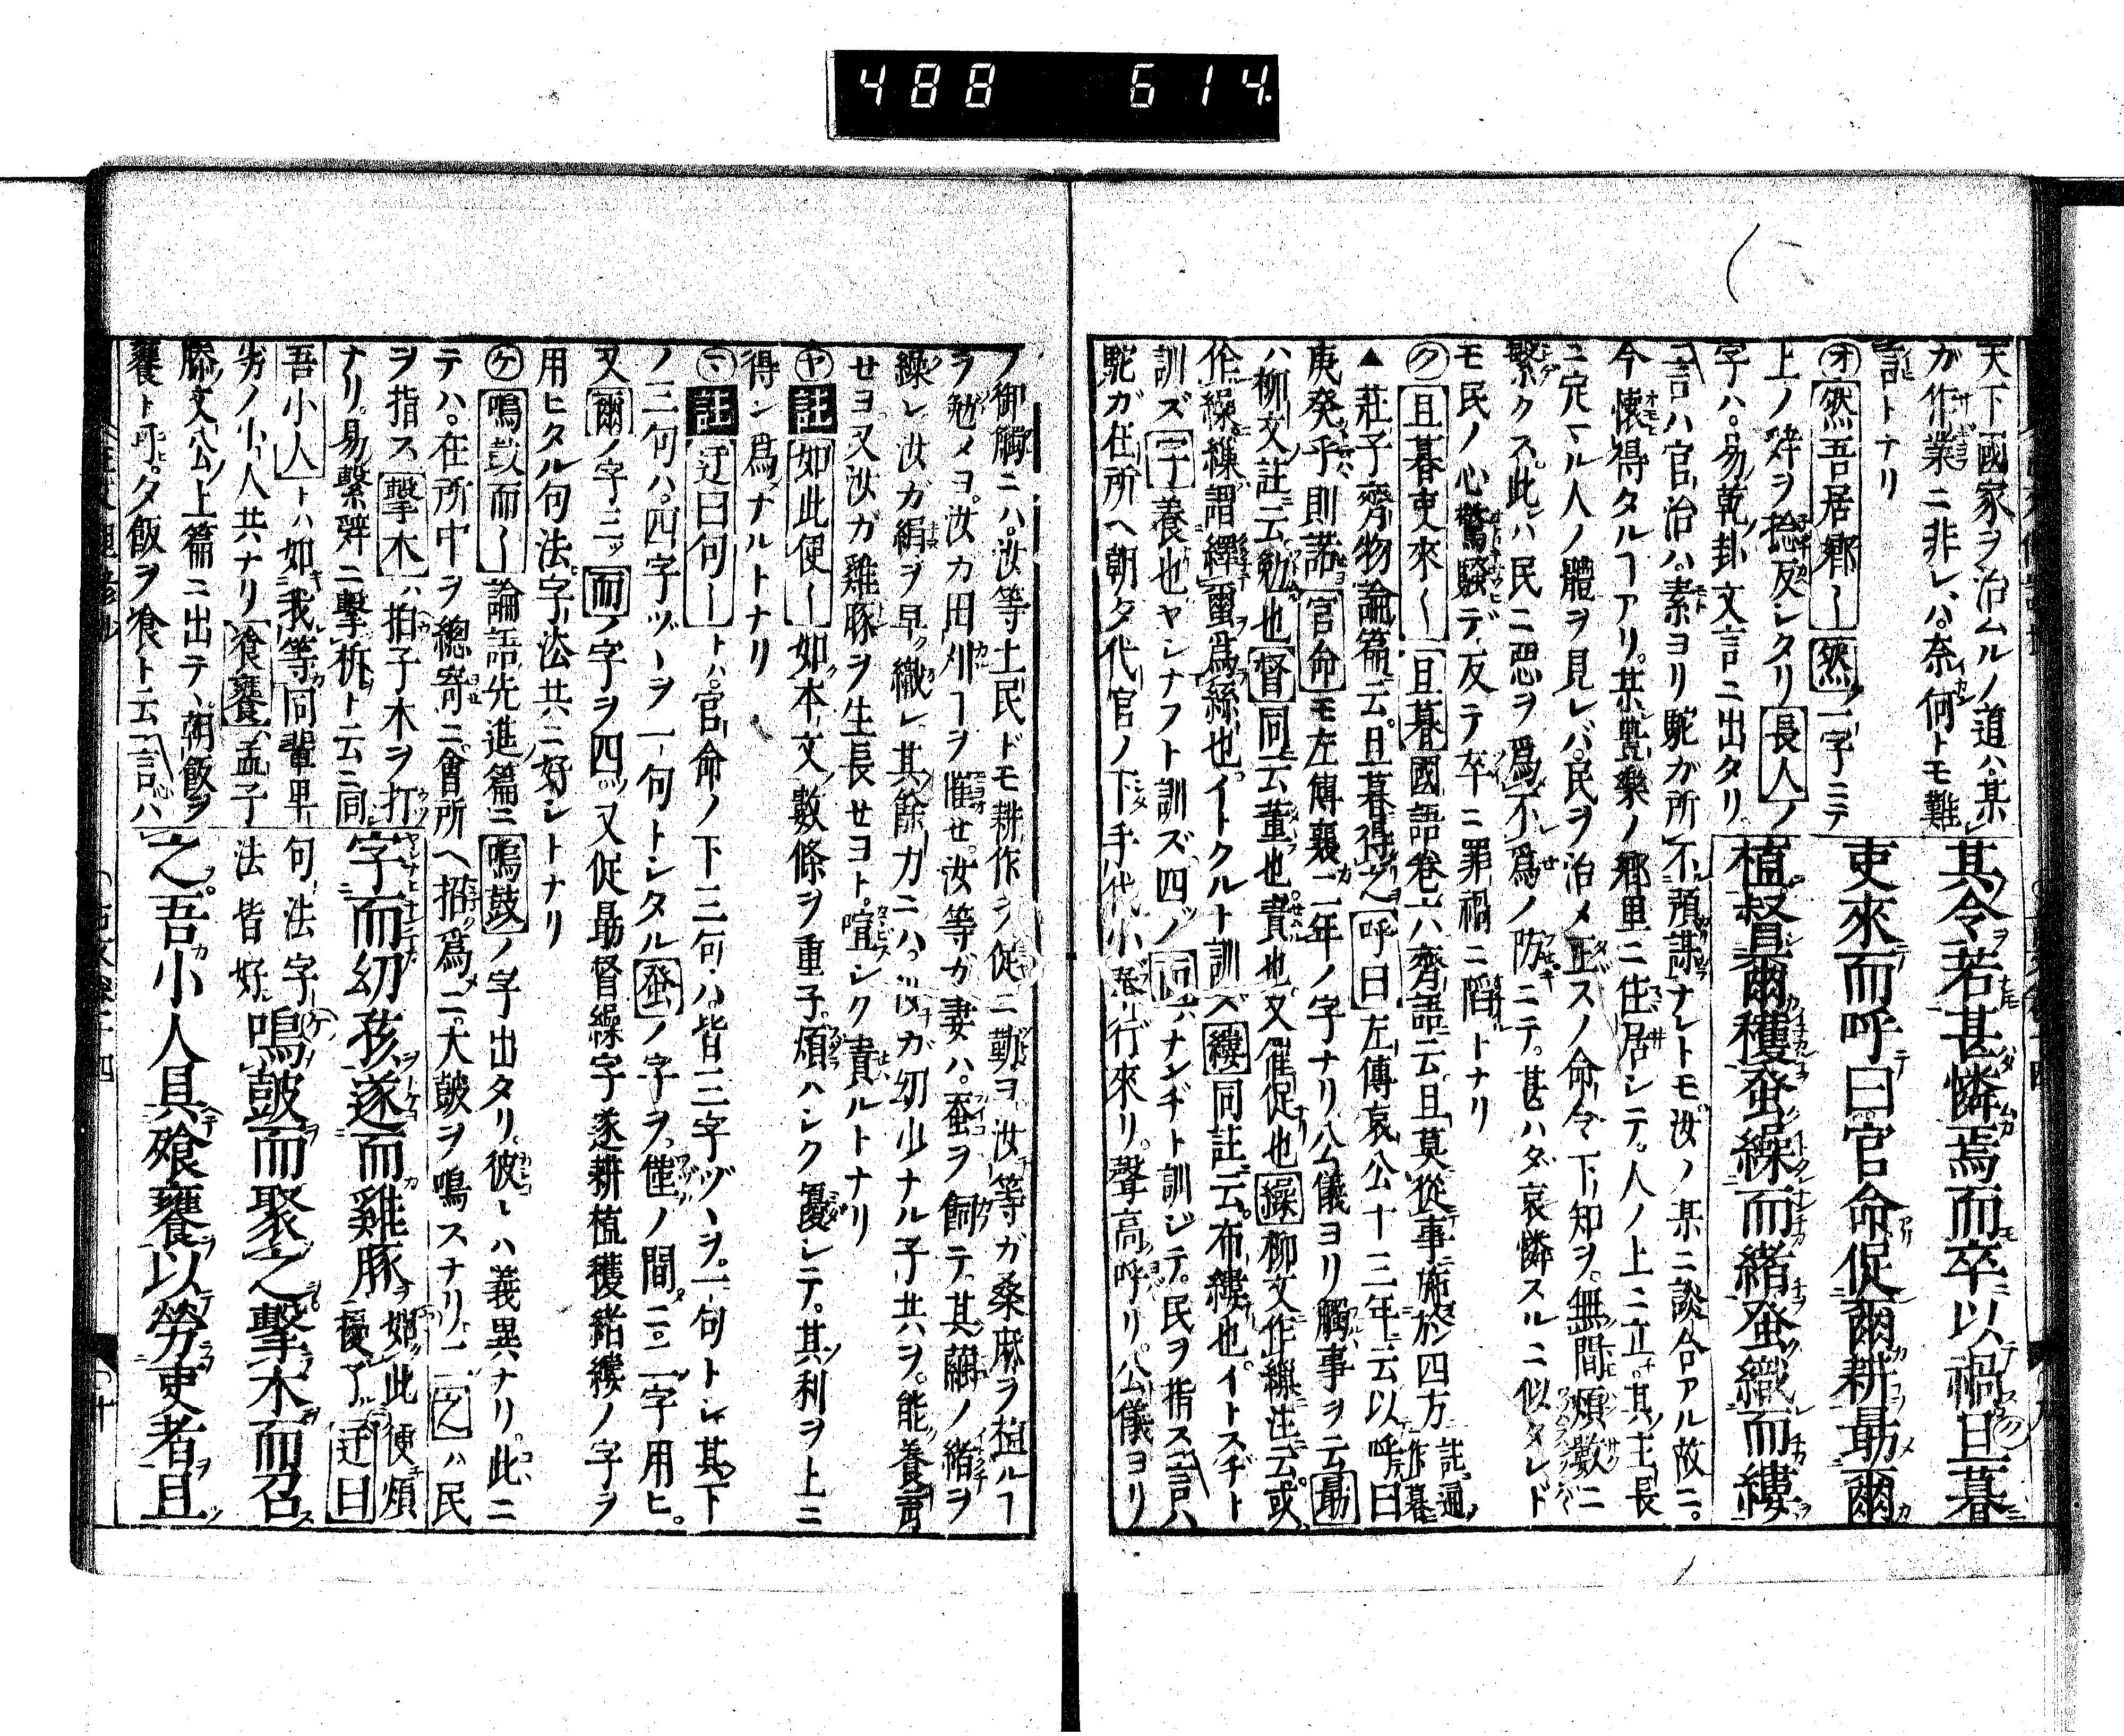 488 614.
天下國家ヲ治ムルノ道ハ某
ガ作業ニ非レバ奈何トモ難
言トナリ
㋔然吾居鄉〜然ノ一字ニテ
上ノ辞ヲ捻反シタリ長人ノ
字ハ易乾卦文言ニ出タリ
其令若甚憐焉而卒以禍且暮
吏來而呼曰官命促爾耕勗爾
植督爾穫蚤繰而緒蚤織而縷
言ハ官治ハ素ヨリ駝ガ所不預謀ナレトモ汝ノ某ニ談合アル故ニ
今懐得タルヿアリ某豐樂ノ鄉里ニ住居シテ人ノ上ニ立其主長
ニ定マル人ノ體ヲ見レバ民ヲ治メ正スノ命令下知ヲ無間煩數ニ
繁クス此ハ民ニ惡ヲ爲不爲ノ防ニテ甚ハダ哀憐スルニ似タレド
モ民ノ心驚騒デ反テ卒ニ罪禍ニ陷トナリ
㋗且暮吏來〜且暮國語卷六齊語云且莫從事施於四方註通作暮
▲莊子齊物論篇云且暮得之呼曰左傳哀公十三年云以呼曰
庚癸乎則諾官命モ左傳襄二年ノ字ナリ公儀ヨリ觸事ヲ云勗
ハ柳文註云勉也督同云董也責也又催促也繰柳文作繅注云或
作繰繅謂繹蠒爲絲也イトクルト訓ズ縷同註云布縷也イトスヂト
訓ズ字養也ヤシナフト訓ズ四ノ同ハナンヂト訓ジテ民ヲ指ス言ハ
駝ガ住所ヘ朝夕代官ノ下手代小巻リ行來リ聲高呼リ公儀ヨリ
ノ御觸ニハ汝等土民ドモ耕作シ促ニ勤ヨ汝等ガ桑麻ヲ植ルヿ
ヲ勉メヨ汝カ田刈ヿヲ催セ汝等ガ妻ハ蚕ヲ飼テ其繭ノ緒ヲ
繰レ汝ガ絹ヲ早ク織レ其餘力ニハ汝ガ幼少ナル子共ヲ能養育
セヨ又汝ガ雞豚ヲ生長セヨト喧シク責ルトナリ
㋳註如此便〜如本文數條ヲ重子煩ハシク擾シテ其利ヲ上ニ
得ン爲ナルトナリ
㋮註迂曰句〜トハ官命ノ下三句ハ皆三字ヅヽヲ一句トシ其下
ノ三句ハ四字ヅヽヲ一句トシタル蚤ノ字ヲ僅ノ間ニ二字用ヒ
又爾ノ字三ッ而ノ字ヲ四ッ又促勗督繰字遂耕植穫緒縷ノ字ヲ
用ヒタル句法字法共ニ好シトナリ
㋘鳴鼓而〜論語先進篇ニ鳴鼓ノ字出タリ彼レハ義異ナリ此ニ
テハ在所中ヲ總寄ニ會所ヘ招爲ニ大鼓ヲ鳴スナリ之ハ民
ヲ指ス擊木ハ拍子木ヲ打
ナリ易繫辭ニ擊柝ト云ニ同
吾小人トハ如我等同輩卑
劣ノ小人共ナリ飧饔孟子
滕文公上篇ニ出テ朝飯ヲ
饔ト呼夕飯ヲ飧ト云言ハ
字而幼孩遂而雞豚如此便煩擾了迂曰
句法字法皆好鳴鼓而聚之擊木而召
之吾小人具飧饔以勞吏者且